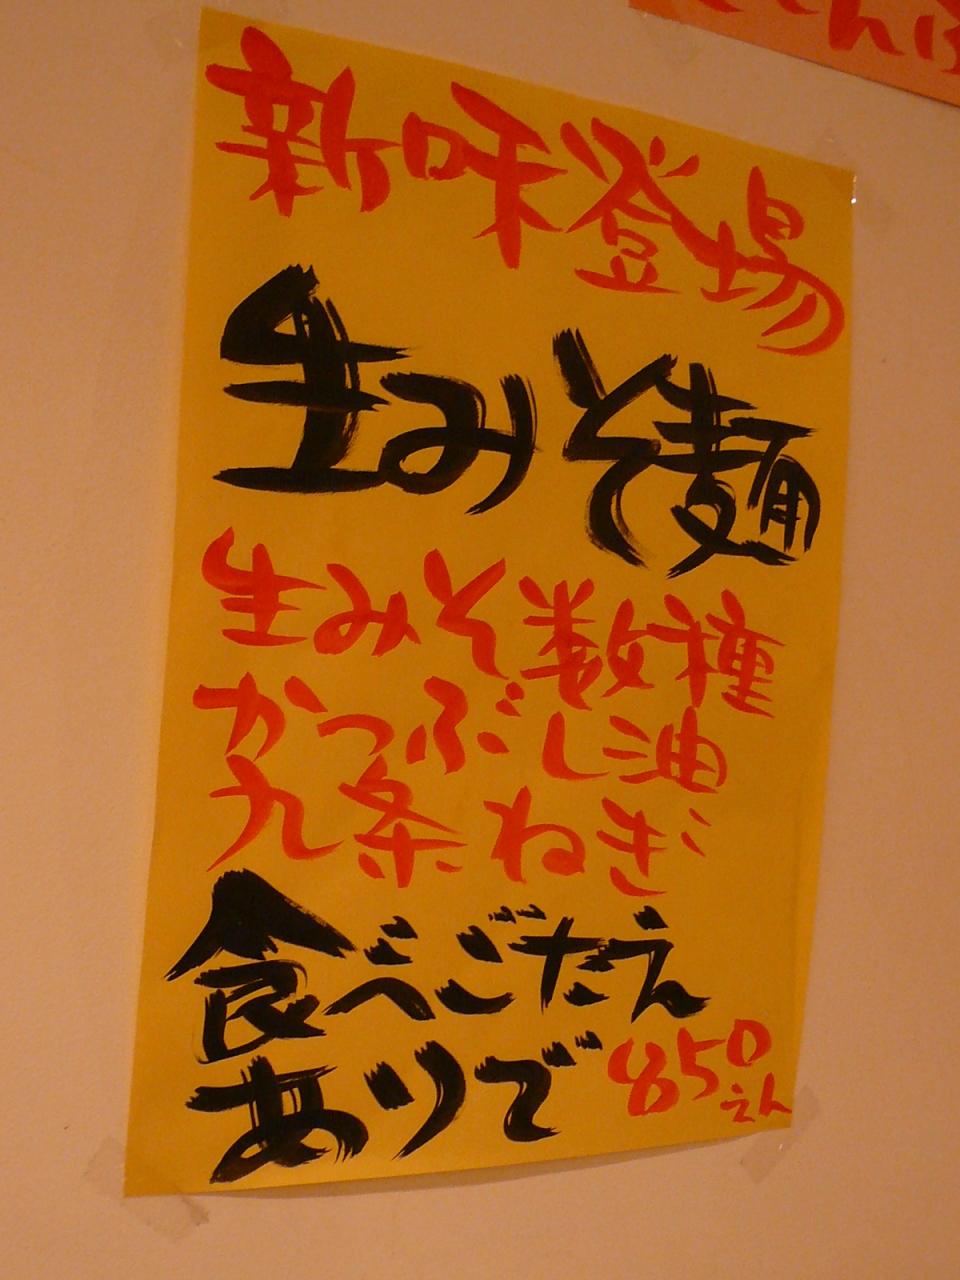 新味登場
生みそ麺
生みそ数種
かつぶし油
九条ねぎ
食べごたえ
ありで
850
えん